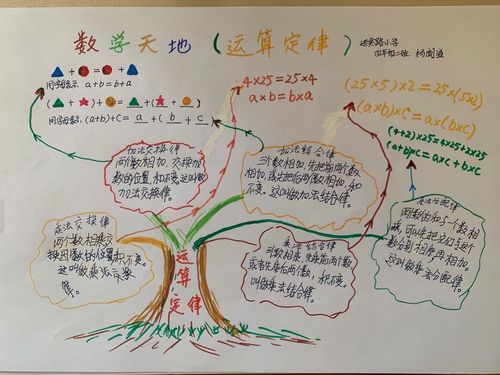 数学天地（运算定律）
四年级二班
▲+●=●+▲
用字母表示 a+b=b+a
(▲+★)+●=▲+(★+●)
用字母表示:(a+b)+c= a +( b + c )
4×25=25×4
a×b=b×a
(25×5)×2=25×(5×2)
(a×b)×c=a×(b×c)
(4+2)×25=4×25+2×25
(a+b)×c=a×c+b×c
加法交换律
两个数相加,交换加
数的位置,和不变。这叫做
加法交换律。
加法结合律
三个数相加,先把前两个数
相加,或先把后两个数相加,和
不变。这叫做加法结合律。
乘法分配律
两个数的和与一个数相
乘,可以先把它们与这个
数分别相乘再相加。
这叫做乘法分配律。
乘法交换律
两个数相乘,交
换因数的位置,积不变。
这叫做乘法交换
律。
乘法结合律
三个数相乘,先乘前两个数,
或者先乘后两个数,积不变。
叫做乘法结合律。
运算
定律